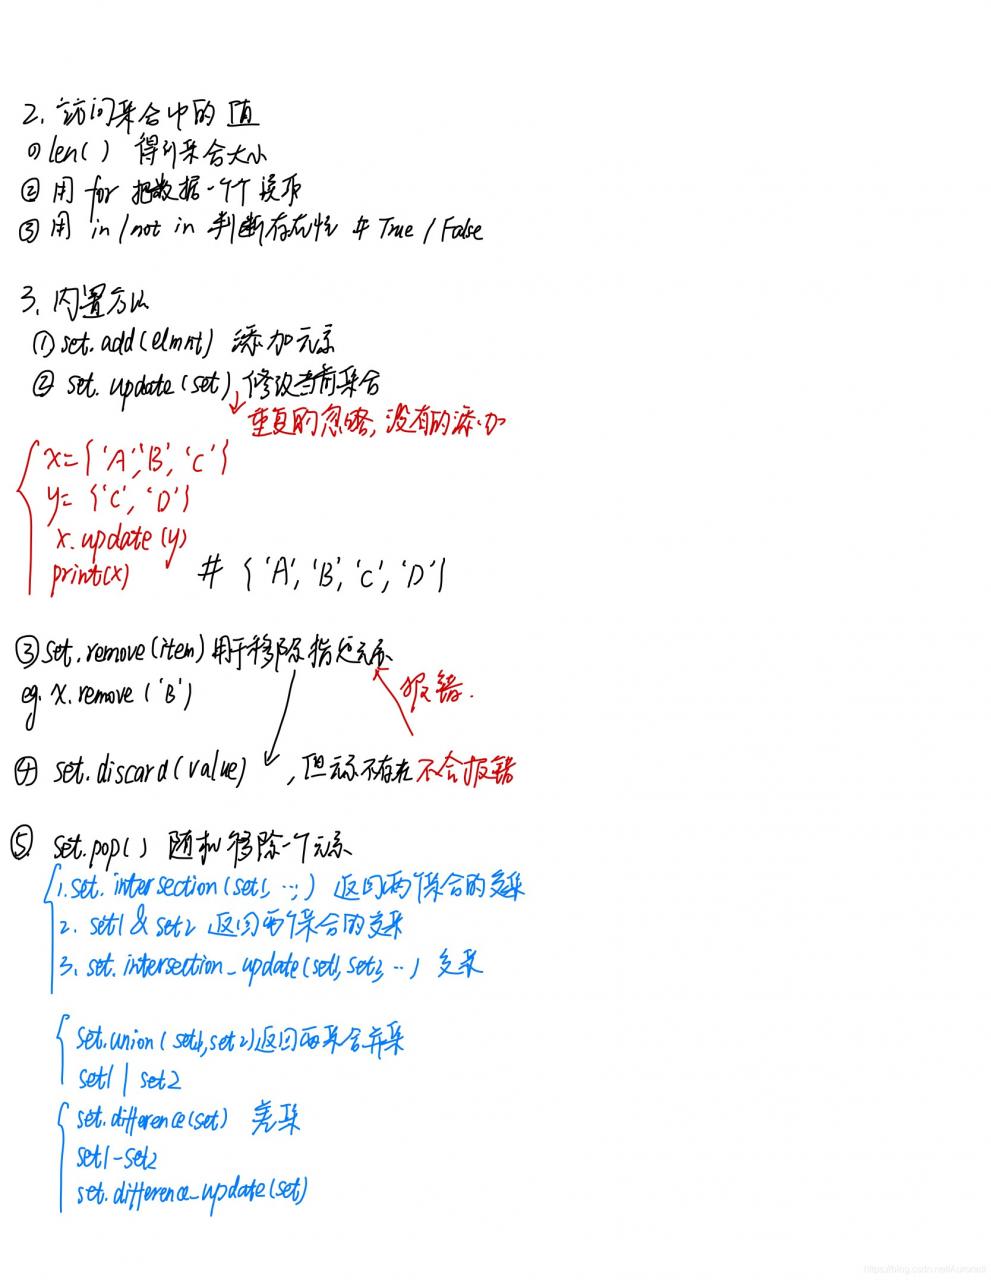 2. 访问集合中的值
① len() 得到集合大小
② 用 for 把数据一个个读取
③ 用 in/not in 判断存在性 True/False
3. 内置方法
① set.add(elmnt) 添加元素
② set.update(set) 修改当前集合
重复的忽略,没有的添加
x={'A','B','C'}
y={'C','D'}
x.update(y)
print(x) # {'A','B','C','D'}
③ set.remove(item) 用于移除指定元素
报错.
eg. x.remove('B')
④ set.discard(value) ,但元素不存在不会报错
⑤ set.pop() 随机移除一个元素
1.set.intersection(set1, ...) 返回两个集合的交集
2. set1 & set2 返回两个集合的交集
3. set.intersection_update(set1,set2, ...) 交集
set.union(set1,set2)返回两集合并集
set1 | set2
set.difference(set) 差集
set1-set2
set.difference_update(set)